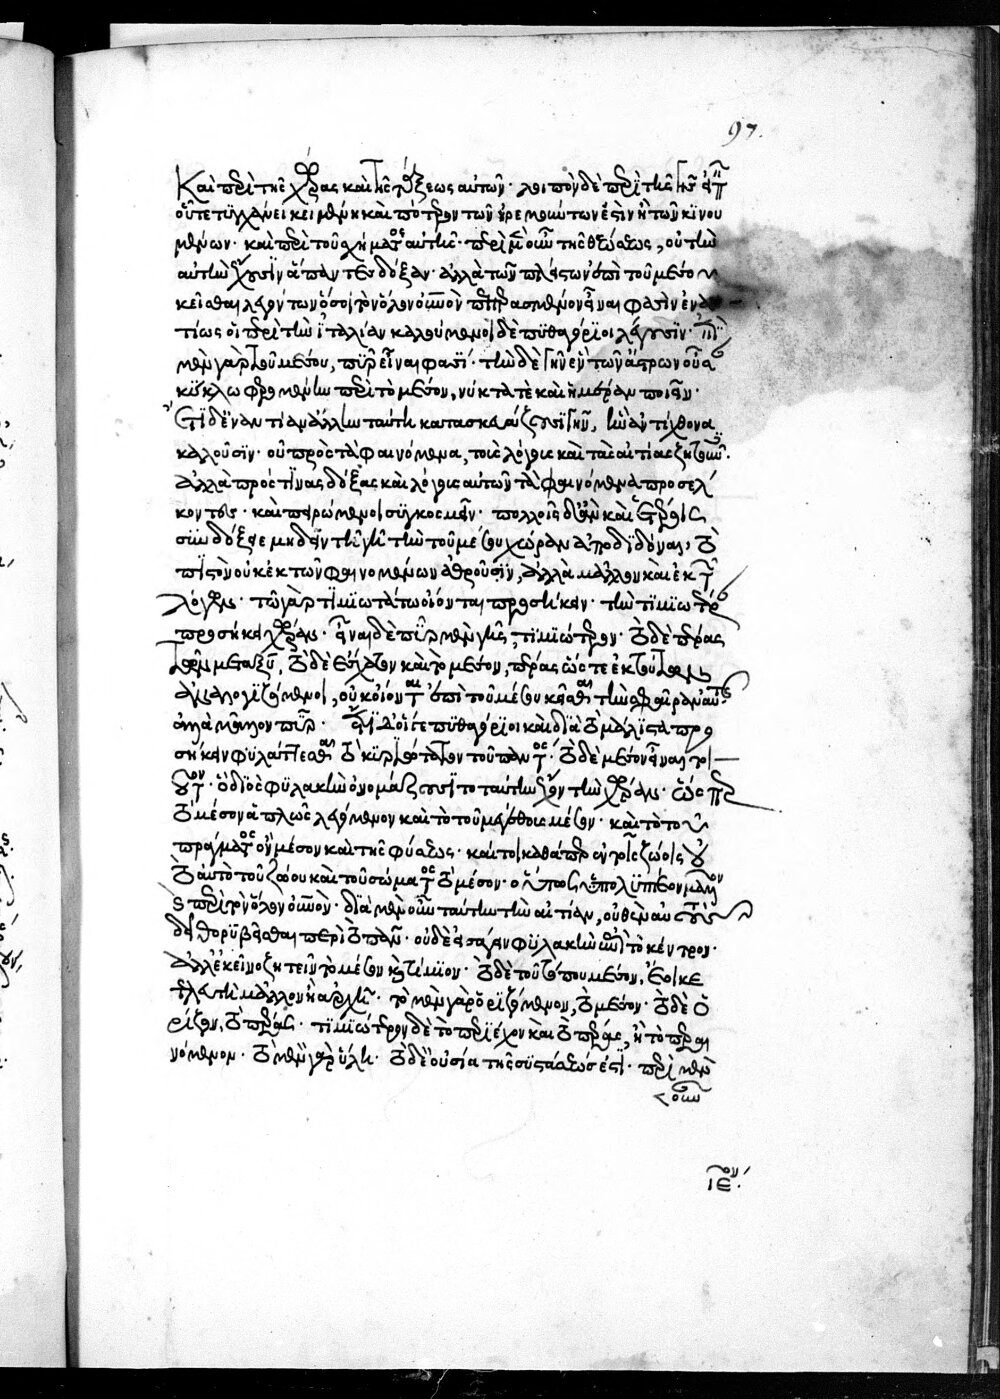 Καὶ περὶ τῆς χώρας καὶ τῆς τάξεως αὐτῶν· λοιπὸν δὲ περὶ τῆς γῆς εἰπεῖν
οὗ τε τυγχάνει κειμένη καὶ πότερον τῶν ἠρεμούντων ἐστὶν ἢ τῶν κινου
μένων· καὶ περὶ τοῦ σχήματος αὐτῆς· περὶ μὲν οὖν τῆς θέσεως, οὐ τὴν
αὐτὴν ἔχουσιν ἅπαντες δόξαν· ἀλλὰ τῶν πλείστων ἐπὶ τοῦ μέσου
κεῖσθαι λεγόντων ὅσοι τὸν ὅλον οὐρανὸν πεπερασμένον εἶναι φασὶν ἐναν
τίως οἱ περὶ τὴν ἰταλίαν καλούμενοι δὲ πυθαγόρειοι λέγουσιν· ἐπὶ
μὲν γὰρ τοῦ μέσου, πῦρ εἶναι φασί· τὴν δὲ γῆν ἓν τῶν ἄστρων οὖσαν
κύκλω φερομένην περὶ τὸ μέσον, νύκτα τὲ καὶ ἡμέραν ποιεῖν·
ἔτι δ' ἐναντίαν ἄλλην ταύτη κατασκευάζουσι γῆν, ἣν ἀντίχθονα
καλοῦσιν· οὐ πρὸς τὰ φαινόμενα, τοὺς λόγους καὶ τὰς αἰτίας ζητοῦντες·
ἀλλὰ πρός τινας δόξας καὶ λόγους αὐτῶν τὰ φαινόμενα προσέλ
κοντες· καὶ πειρώμενοι συγκοσμεῖν· πολλοῖς δ' ἂν καὶ ἑτέροις
συνδόξειε μὴ δεῖν τῆ γῆ τὴν τοῦ μέσου χώραν ἀποδιδόναι, τὸ
πιστὸν οὐκ ἐκ τῶν φαινομένων ἀθροῦσιν, ἀλλὰ μᾶλλον καὶ ἐκ τῶν
λόγων· τῶ γὰρ τιμιωτάτω οἴονται προσήκειν· τὴν τιμιωτέραν
προσήκειν χώραν· εἶναι δὲ πῦρ μὲν γῆς, τιμιώτερον· τὸ δὲ πέρας
τῶν μεταξύ, τὸ δὲ ἔσχατον καὶ τὸ μέσον, πέρας ὥστε ἐκ τούτων
ἀναλογιζόμενοι, οὐκ οἴονται ἐπὶ τοῦ μέσου κεῖσθαι τῆς σφαίρας αὐτὴν
ἀλλὰ μᾶλλον πῦρ· ἔτι δ' οἵ γε πυθαγόρειοι καὶ διὰ τὸ μάλιστα προσ
ήκειν φυλάττεσθαι τὸ κυριώτατον τοῦ παντός· τὸ δὲ μέσον εἶναι τοι
οῦτον· ὃ διὸς φυλακὴν ὀνομάζουσι τὸ ταύτην ἔχον τὴν χώραν· ὥσπερ
τὸ μέσον ἁπλῶς λεγόμενον καὶ τὸ τοῦ μεγέθους μέσον· καὶ τὸ τοῦ
πράγματος ὂν μέσον καὶ τῆς φύσεως· καίτοι καθάπερ ἐν τοῖς ζώοις οὐ
τὸ αὐτὸ τοῦ ζώου καὶ τοῦ σώματος τὸ μέσον· οὕτως ὑποληπτέον μᾶλλον
καὶ περὶ τὸν ὅλον οὐρανόν· διὰ μὲν οὖν ταύτην τὴν αἰτίαν, οὐθὲν αὐτοὺς
δεῖ θορυβεῖσθαι περὶ τὸ πᾶν· οὐδὲ εἰσάγειν φυλακὴν ἐπὶ τὸ κέντρον·
ἀλλ' ἐκεῖνο ζητεῖν τὸ μέσον καὶ τίμιον· τὸ δὲ τοῦ τόπου μέσον, ἔοικε
τελευτῆ μᾶλλον ἢ ἀρχῆ· τὸ μὲν γὰρ ὁριζόμενον, τὸ μέσον· τὸ δὲ ὁ
ρίζον, τὸ πέρας· τιμιώτερον δὲ τὸ περιέχον καὶ τὸ πέρας, ἢ τὸ περαι
νόμενον· τὸ μὲν γὰρ ὕλη· τὸ δὲ οὐσία τῆς συστάσεώς ἐστι· περὶ μὲν
οὖν